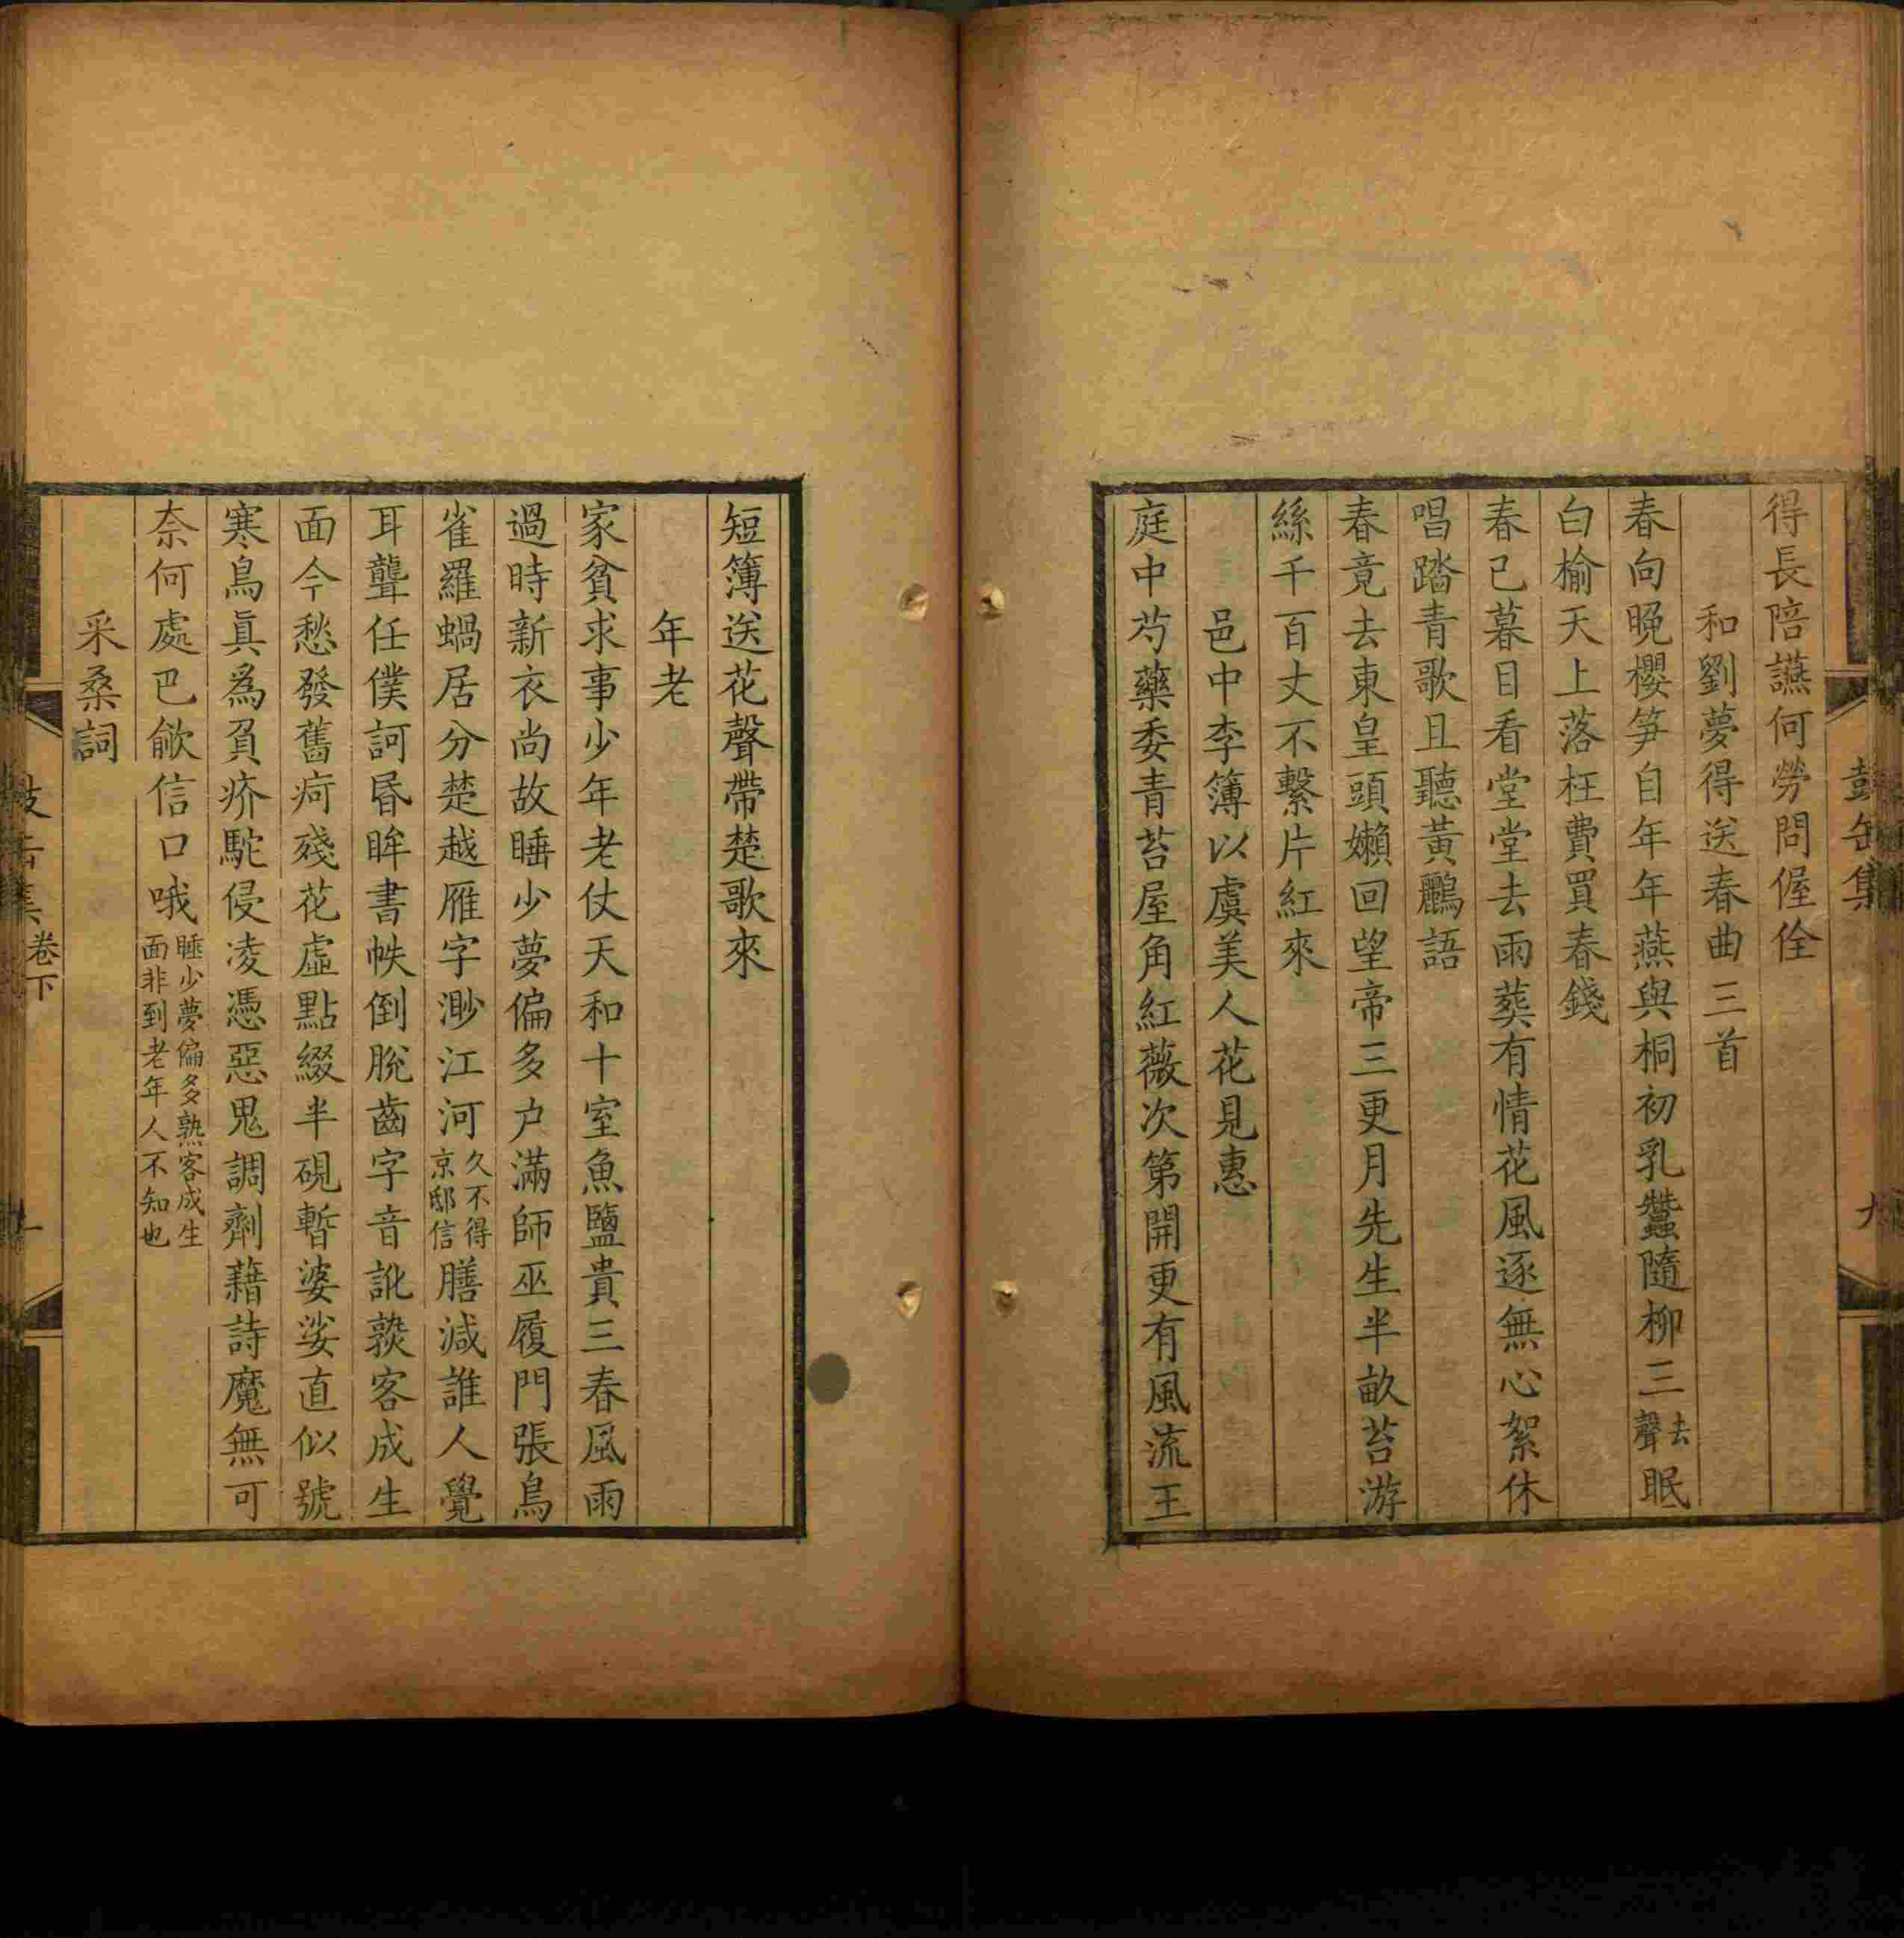 得長陪讌何勞問偓佺
和劉夢得送春曲三首
春向晚櫻笋自年年燕與桐初乳蠶隨柳三去聲眠
白榆天上落枉費買春錢
春已暮目看堂堂去雨葬有情花風逐無心絮休
唱踏青歌且聽黃鸝語
春竟去東皇頭嬾回望帝三更月先生半畝苔游
絲千百丈不繫片紅來
邑中李簿以虞美人花見惠
庭中芍藥委青苔屋角紅薇次第開更有風流王
短簿送花聲帶楚歌來
年老
家貧求事少年老仗天和十室魚鹽貴三春風雨
過時新衣尚故睡少夢偏多户滿師巫履門張鳥
雀羅蝸居分楚越雁字渺江河久不得京邸信膳減誰人覺
耳聾任僕訶昏眸書帙倒脫齒字音訛歎客成生
面今愁發舊疴殘花虛點綴半硯暫婆娑直似號
寒鳥眞爲負疥駝侵凌憑惡鬼調劑藉詩魔無可
奈何處巴歈信口哦睡少夢偏多熟客成生面非到老年人不知也
采桑詞
卷下